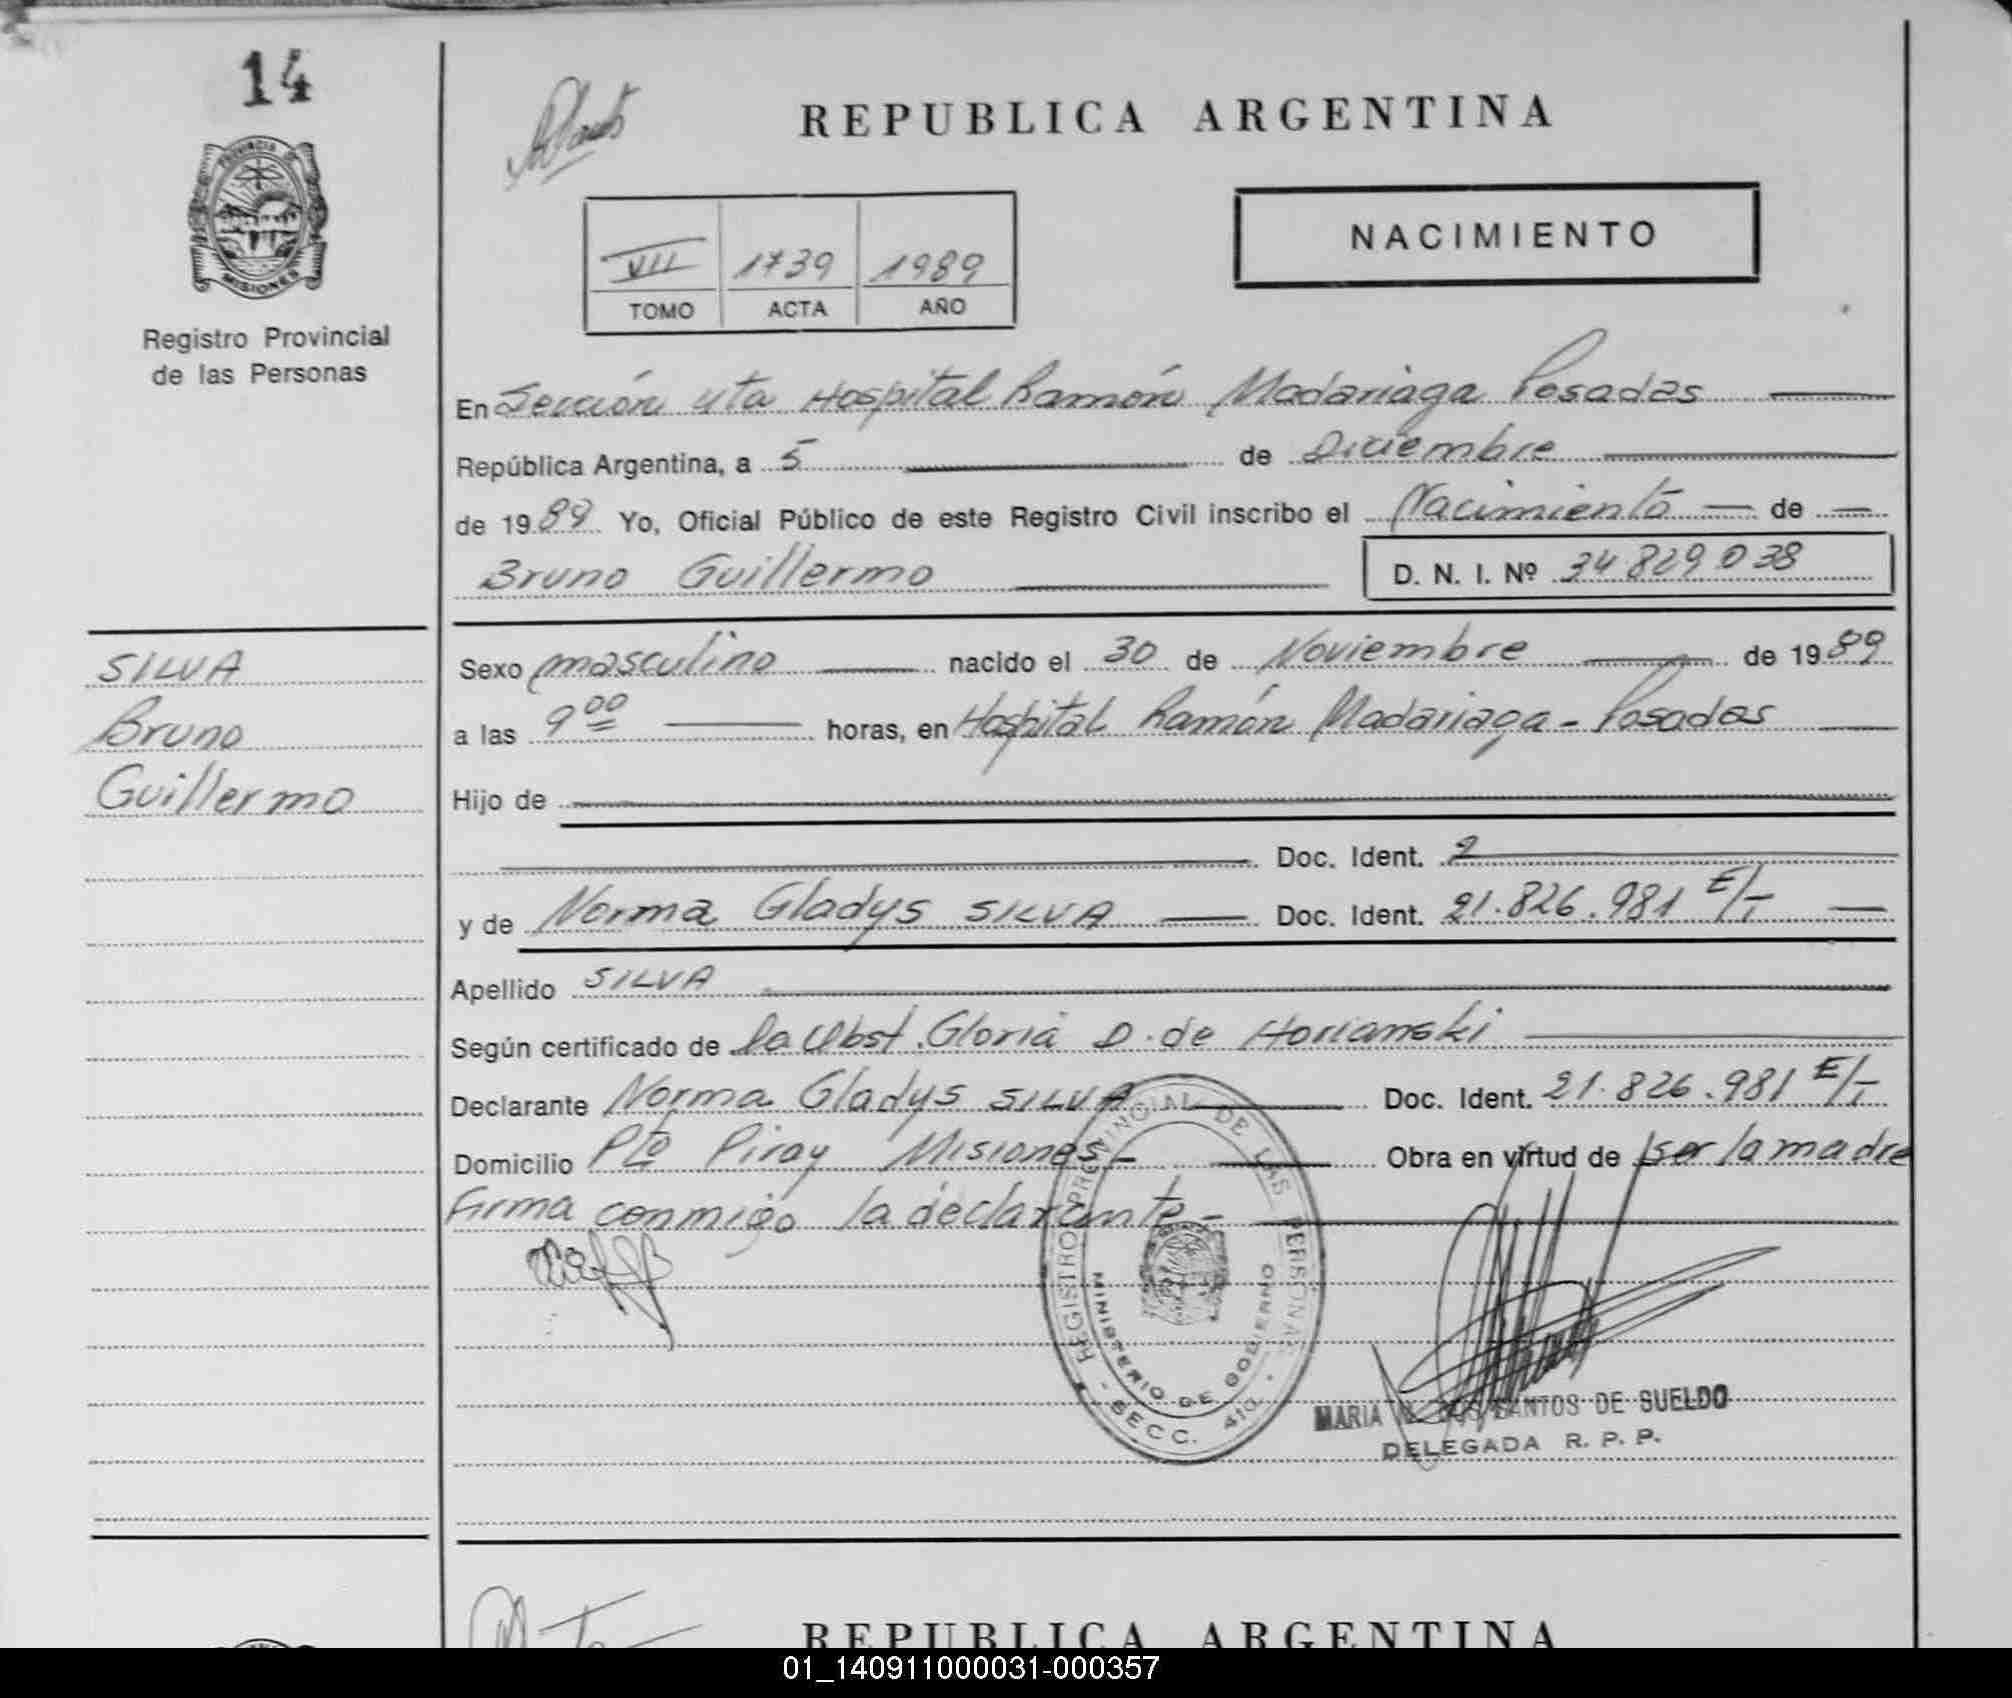 14
PROVINCIA DE
MISIONES
Registro Provincial
de las Personas
REPUBLICA ARGENTINA
NACIMIENTO
VII 1739 1989
TOMO ACTA AÑO
En Sección 4ta Hospital Ramón Madariaga Posadas
República Argentina, a 5 de Diciembre
de 1989 Yo, Oficial Público de este Registro Civil inscribo el Nacimiento de
Bruno Guillermo D. N. I. Nº 34 829 038
SILVA
Bruno
Guillermo
Sexo masculino nacido el 30 de Noviembre de 1989
a las 9 00 horas, en Hospital Ramón Madariaga - Posadas
Hijo de
Doc. Ident.
y de Norma Gladys SILVA Doc. Ident. 21.826.981 E/T
Apellido SILVA
Según certificado de la Obst. Gloria D. de Horianski
Declarante Norma Gladys SILVA Doc. Ident. 21.826.981 E/T
Domicilio Pto Piray Misiones - Obra en virtud de ser la madre
Firma conmigo la declarante -
REGISTRO PROVINCIAL DE LAS PERSONAS
MINISTERIO DE GOBIERNO
- SECC. 4ta. -
MARIA SANTOS DE SUELDO
DELEGADA R. P. P.
REPUBLICA ARGENTINA
01_140911000031-000357